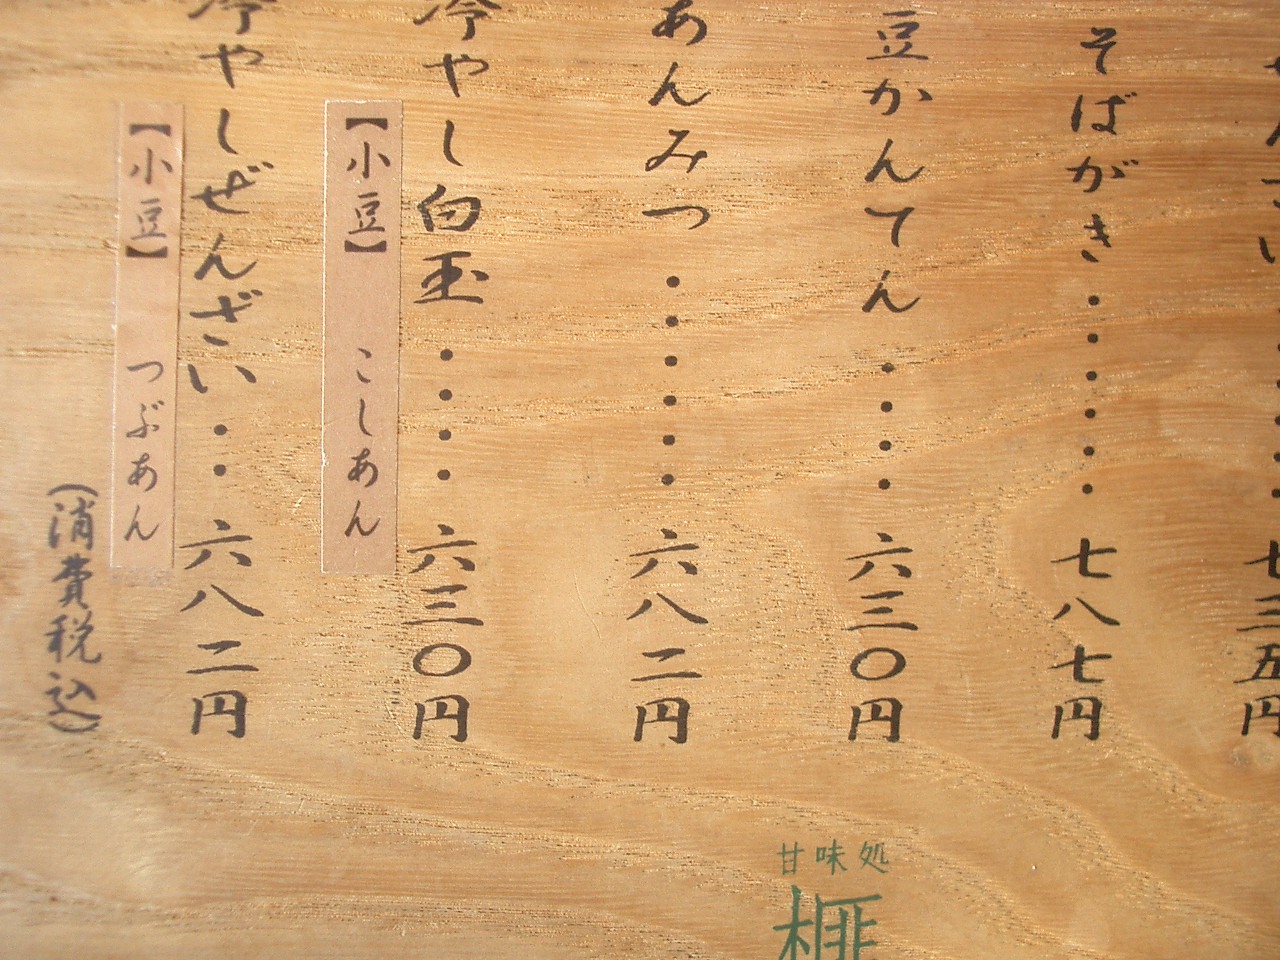 七三五円
そばがき・・・・・・七八七円
豆かんてん・・・・六三〇円
あんみつ・・・・・・六八二円
冷やし白玉・・・・六三〇円
【小豆】 こしあん
冷やしぜんざい・・六八二円
【小豆】 つぶあん
(消費税込)
甘味処
榧